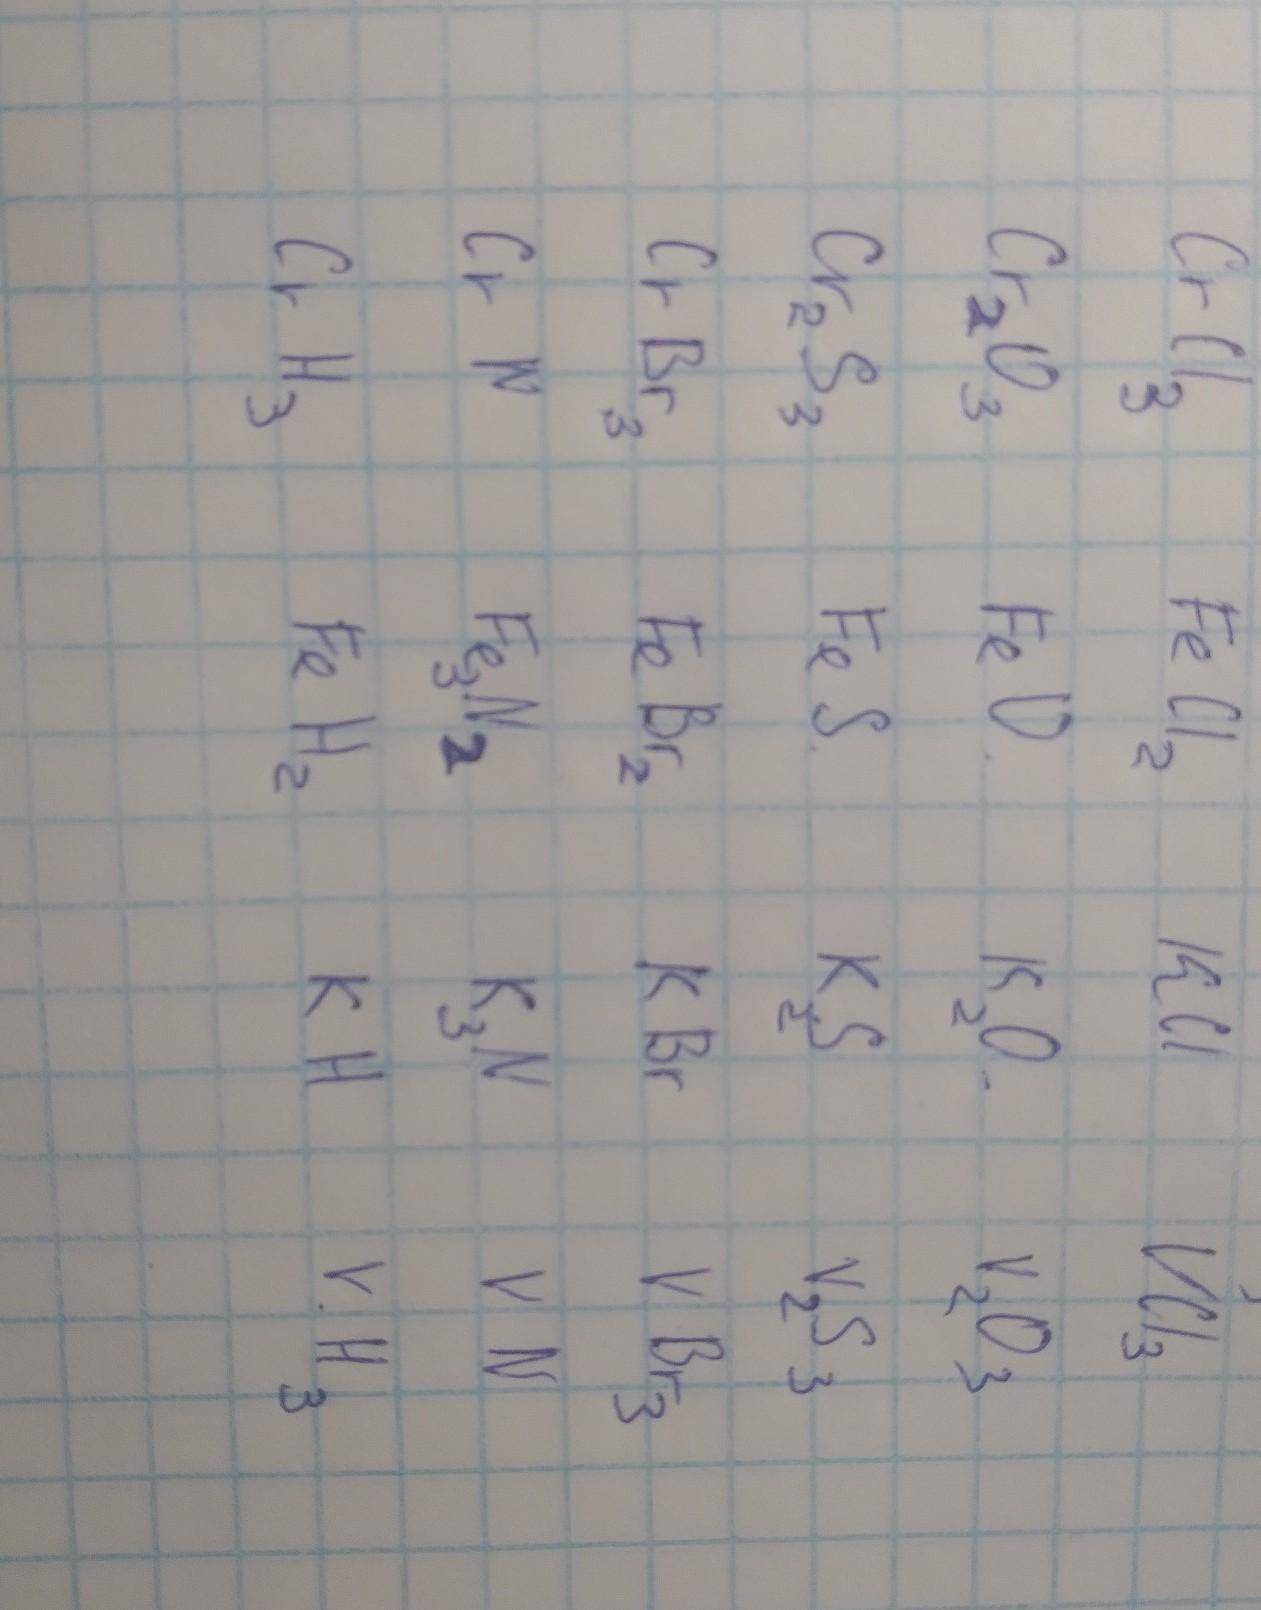 CrCl₃ FeCl₂ KCl VCl₃
Cr₂O₃ FeO K₂O V₂O₃
Cr₂S₃ FeS K₂S V₂S₃
CrBr₃ FeBr₂ KBr VBr₃
CrN Fe₃N₂ K₃N VN
CrH₃ FeH₂ KH VH₃